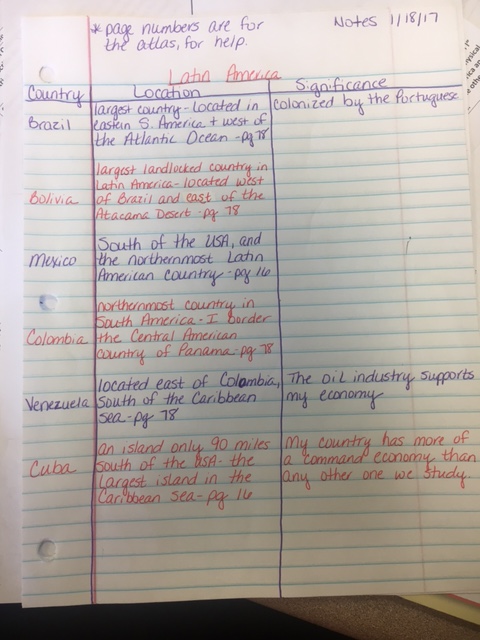 * page numbers are for
the atlas, for help.
Notes 1/18/17
Latin America
Country Location Significance
Brazil
largest country - Located in
eastern S. America + west of
the Atlantic Ocean - pg 78
colonized by the Portuguese
Bolivia
largest landlocked country in
Latin America - located west
of Brazil and east of the
Atacama Desert - pg 78
Mexico
South of the USA, and
the northernmost Latin
American country - pg 16
Colombia
northernmost country in
South America - I border
the Central American
country of Panama - pg 78
Venezuela
located east of Colombia,
South of the Caribbean
sea - pg 78
The oil industry supports
my economy
Cuba
an island only 90 miles
south of the USA - the
largest island in the
Caribbean Sea - pg 16
My country has more of
a command economy than
any other one we study.